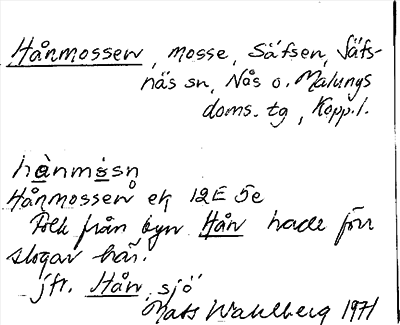 Hånmossen, mosse, Säfsen, Säfs-
näs sn, Nås o. Malungs
doms. tg, Kopp. l.
hånmåsn
Hånmossen ek 12E 5e
Folk från byn Hån hade förr
slogar här.
jfr. Hån, sjö
Mats Wahlberg 1971